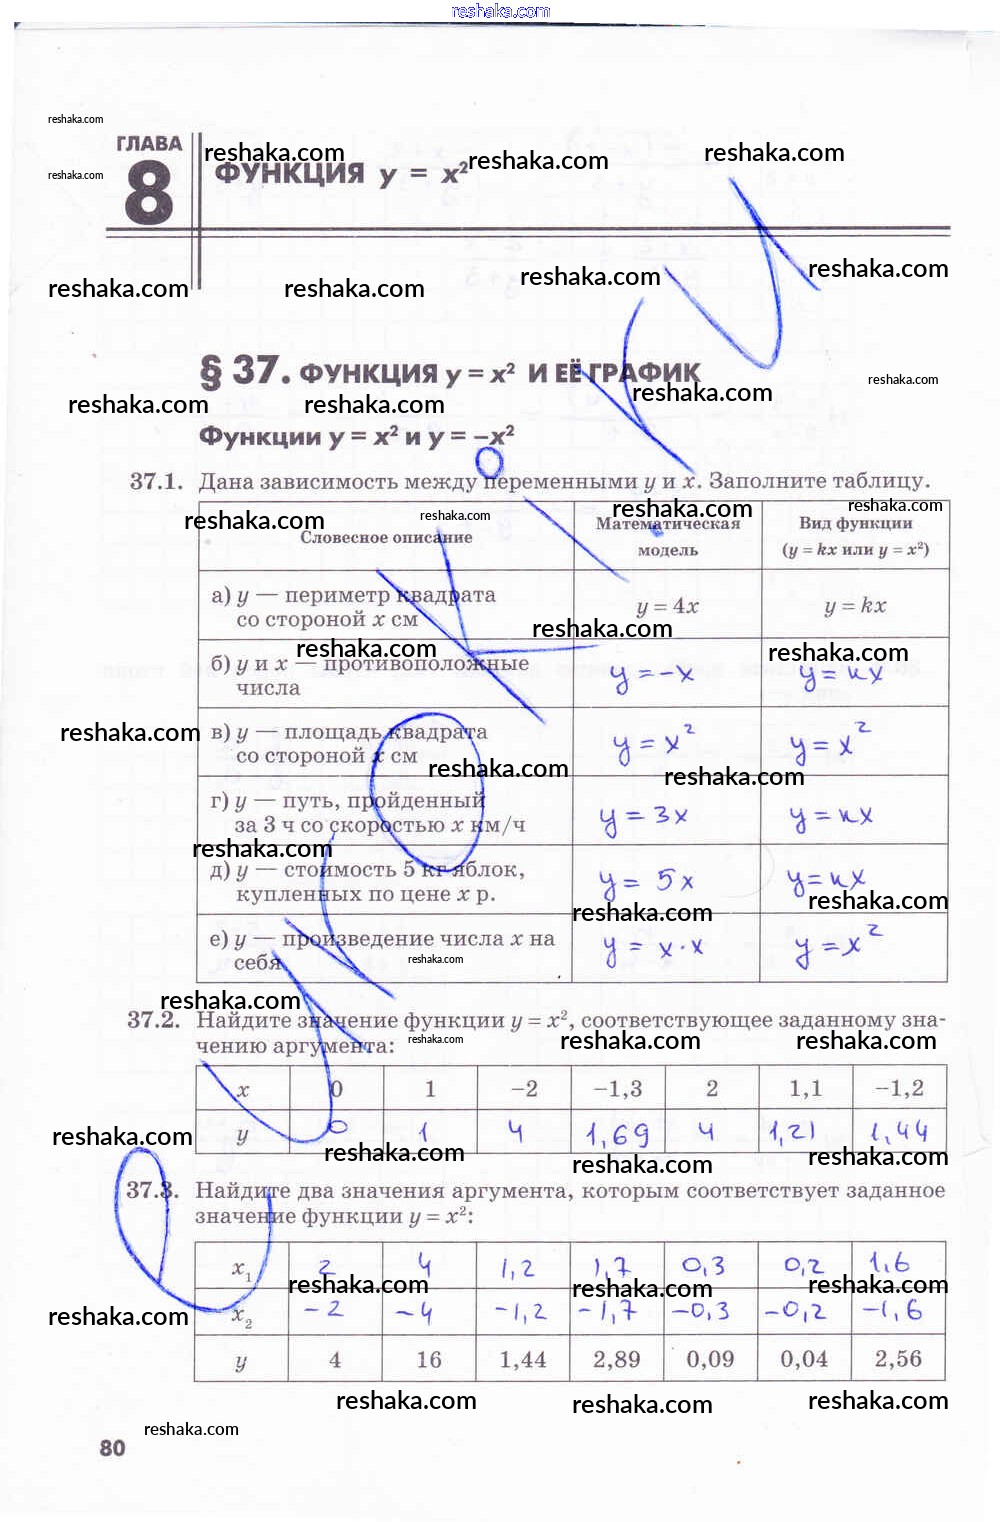 reshaka.com
ГЛАВА
8
ФУНКЦИЯ y = x²
§ 37. ФУНКЦИЯ y = x² И ЕЁ ГРАФИК
Функции y = x² и y = –x²
37.1. Дана зависимость между переменными y и x. Заполните таблицу.
Словесное описание | Математическая модель | Вид функции (y = kx или y = x²)
а) y — периметр квадрата
со стороной x см | y = 4x | y = kx
б) y и x — противоположные
числа | y = -x | y = kx
в) y — площадь квадрата
со стороной x см | y = x² | y = x²
г) y — путь, пройденный
за 3 ч со скоростью x км/ч | y = 3x | y = kx
д) y — стоимость 5 кг яблок,
купленных по цене x р. | y = 5x | y = kx
е) y — произведение числа x на
себя | y = x·x | y = x²
37.2. Найдите значение функции y = x², соответствующее заданному зна-
чению аргумента:
x | 0 | 1 | –2 | –1,3 | 2 | 1,1 | –1,2
y | 0 | 1 | 4 | 1,69 | 4 | 1,21 | 1,44
37.3. Найдите два значения аргумента, которым соответствует заданное
значение функции y = x²:
x₁ | 2 | 4 | 1,2 | 1,7 | 0,3 | 0,2 | 1,6
x₂ | -2 | -4 | -1,2 | -1,7 | -0,3 | -0,2 | -1,6
y | 4 | 16 | 1,44 | 2,89 | 0,09 | 0,04 | 2,56
80